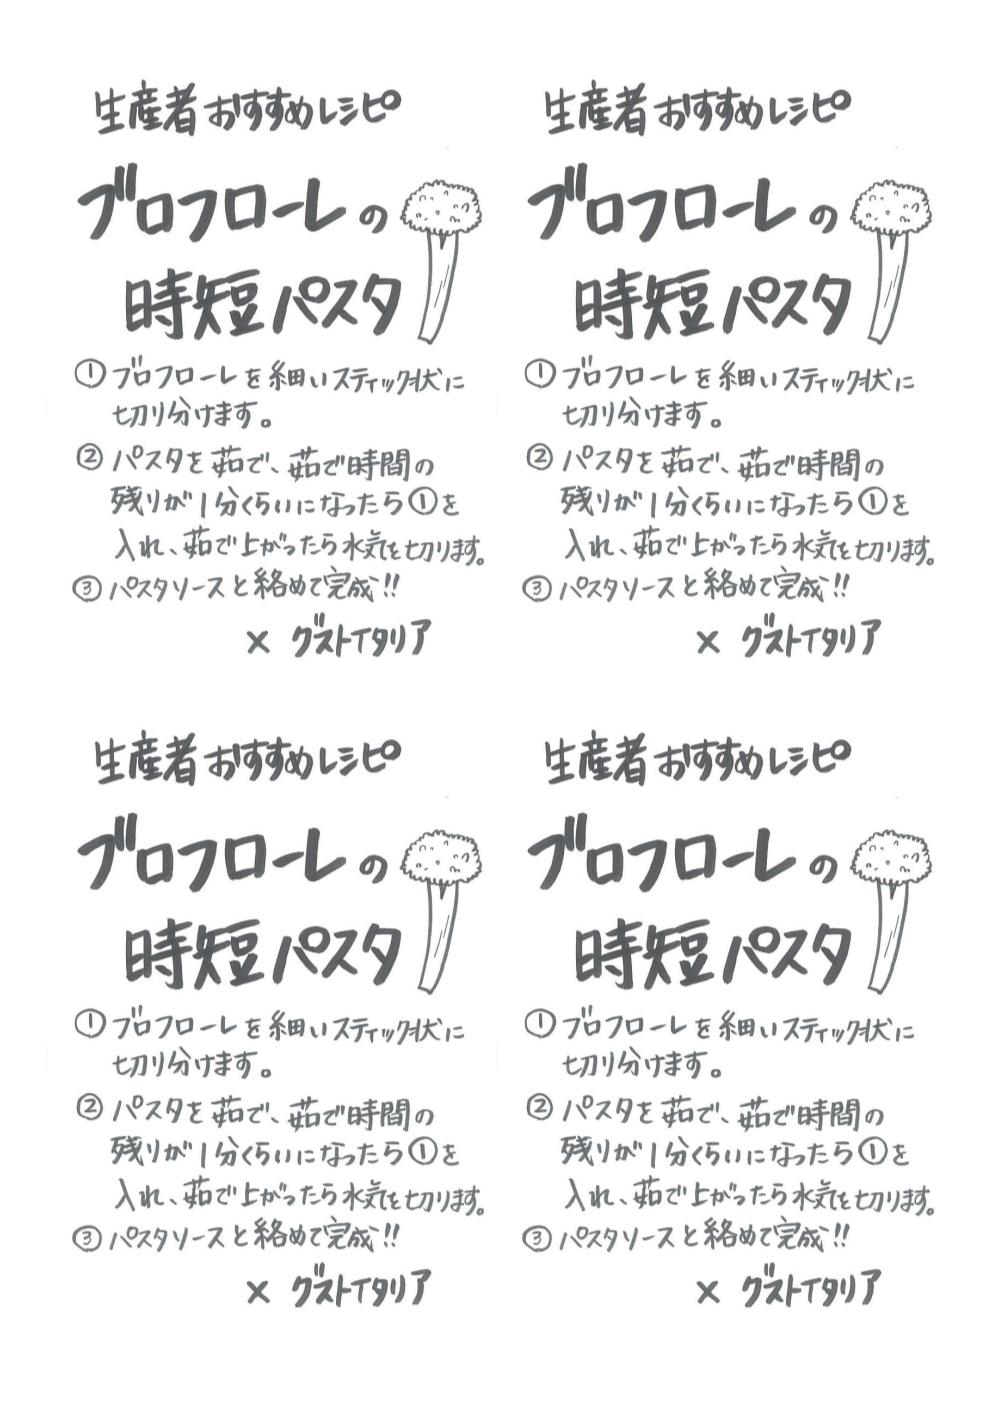 生産者おすすめレシピ
ブロフローレの
時短パスタ
①ブロフローレを細いスティック状に
切り分けます。
②パスタを茹で、茹で時間の
残りが1分くらいになったら①を
入れ、茹で上がったら水気を切ります。
③パスタソースと絡めて完成!!
× グストイタリア
生産者おすすめレシピ
ブロフローレの
時短パスタ
①ブロフローレを細いスティック状に
切り分けます。
②パスタを茹で、茹で時間の
残りが1分くらいになったら①を
入れ、茹で上がったら水気を切ります。
③パスタソースと絡めて完成!!
× グストイタリア
生産者おすすめレシピ
ブロフローレの
時短パスタ
①ブロフローレを細いスティック状に
切り分けます。
②パスタを茹で、茹で時間の
残りが1分くらいになったら①を
入れ、茹で上がったら水気を切ります。
③パスタソースと絡めて完成!!
× グストイタリア
生産者おすすめレシピ
ブロフローレの
時短パスタ
①ブロフローレを細いスティック状に
切り分けます。
②パスタを茹で、茹で時間の
残りが1分くらいになったら①を
入れ、茹で上がったら水気を切ります。
③パスタソースと絡めて完成!!
× グストイタリア